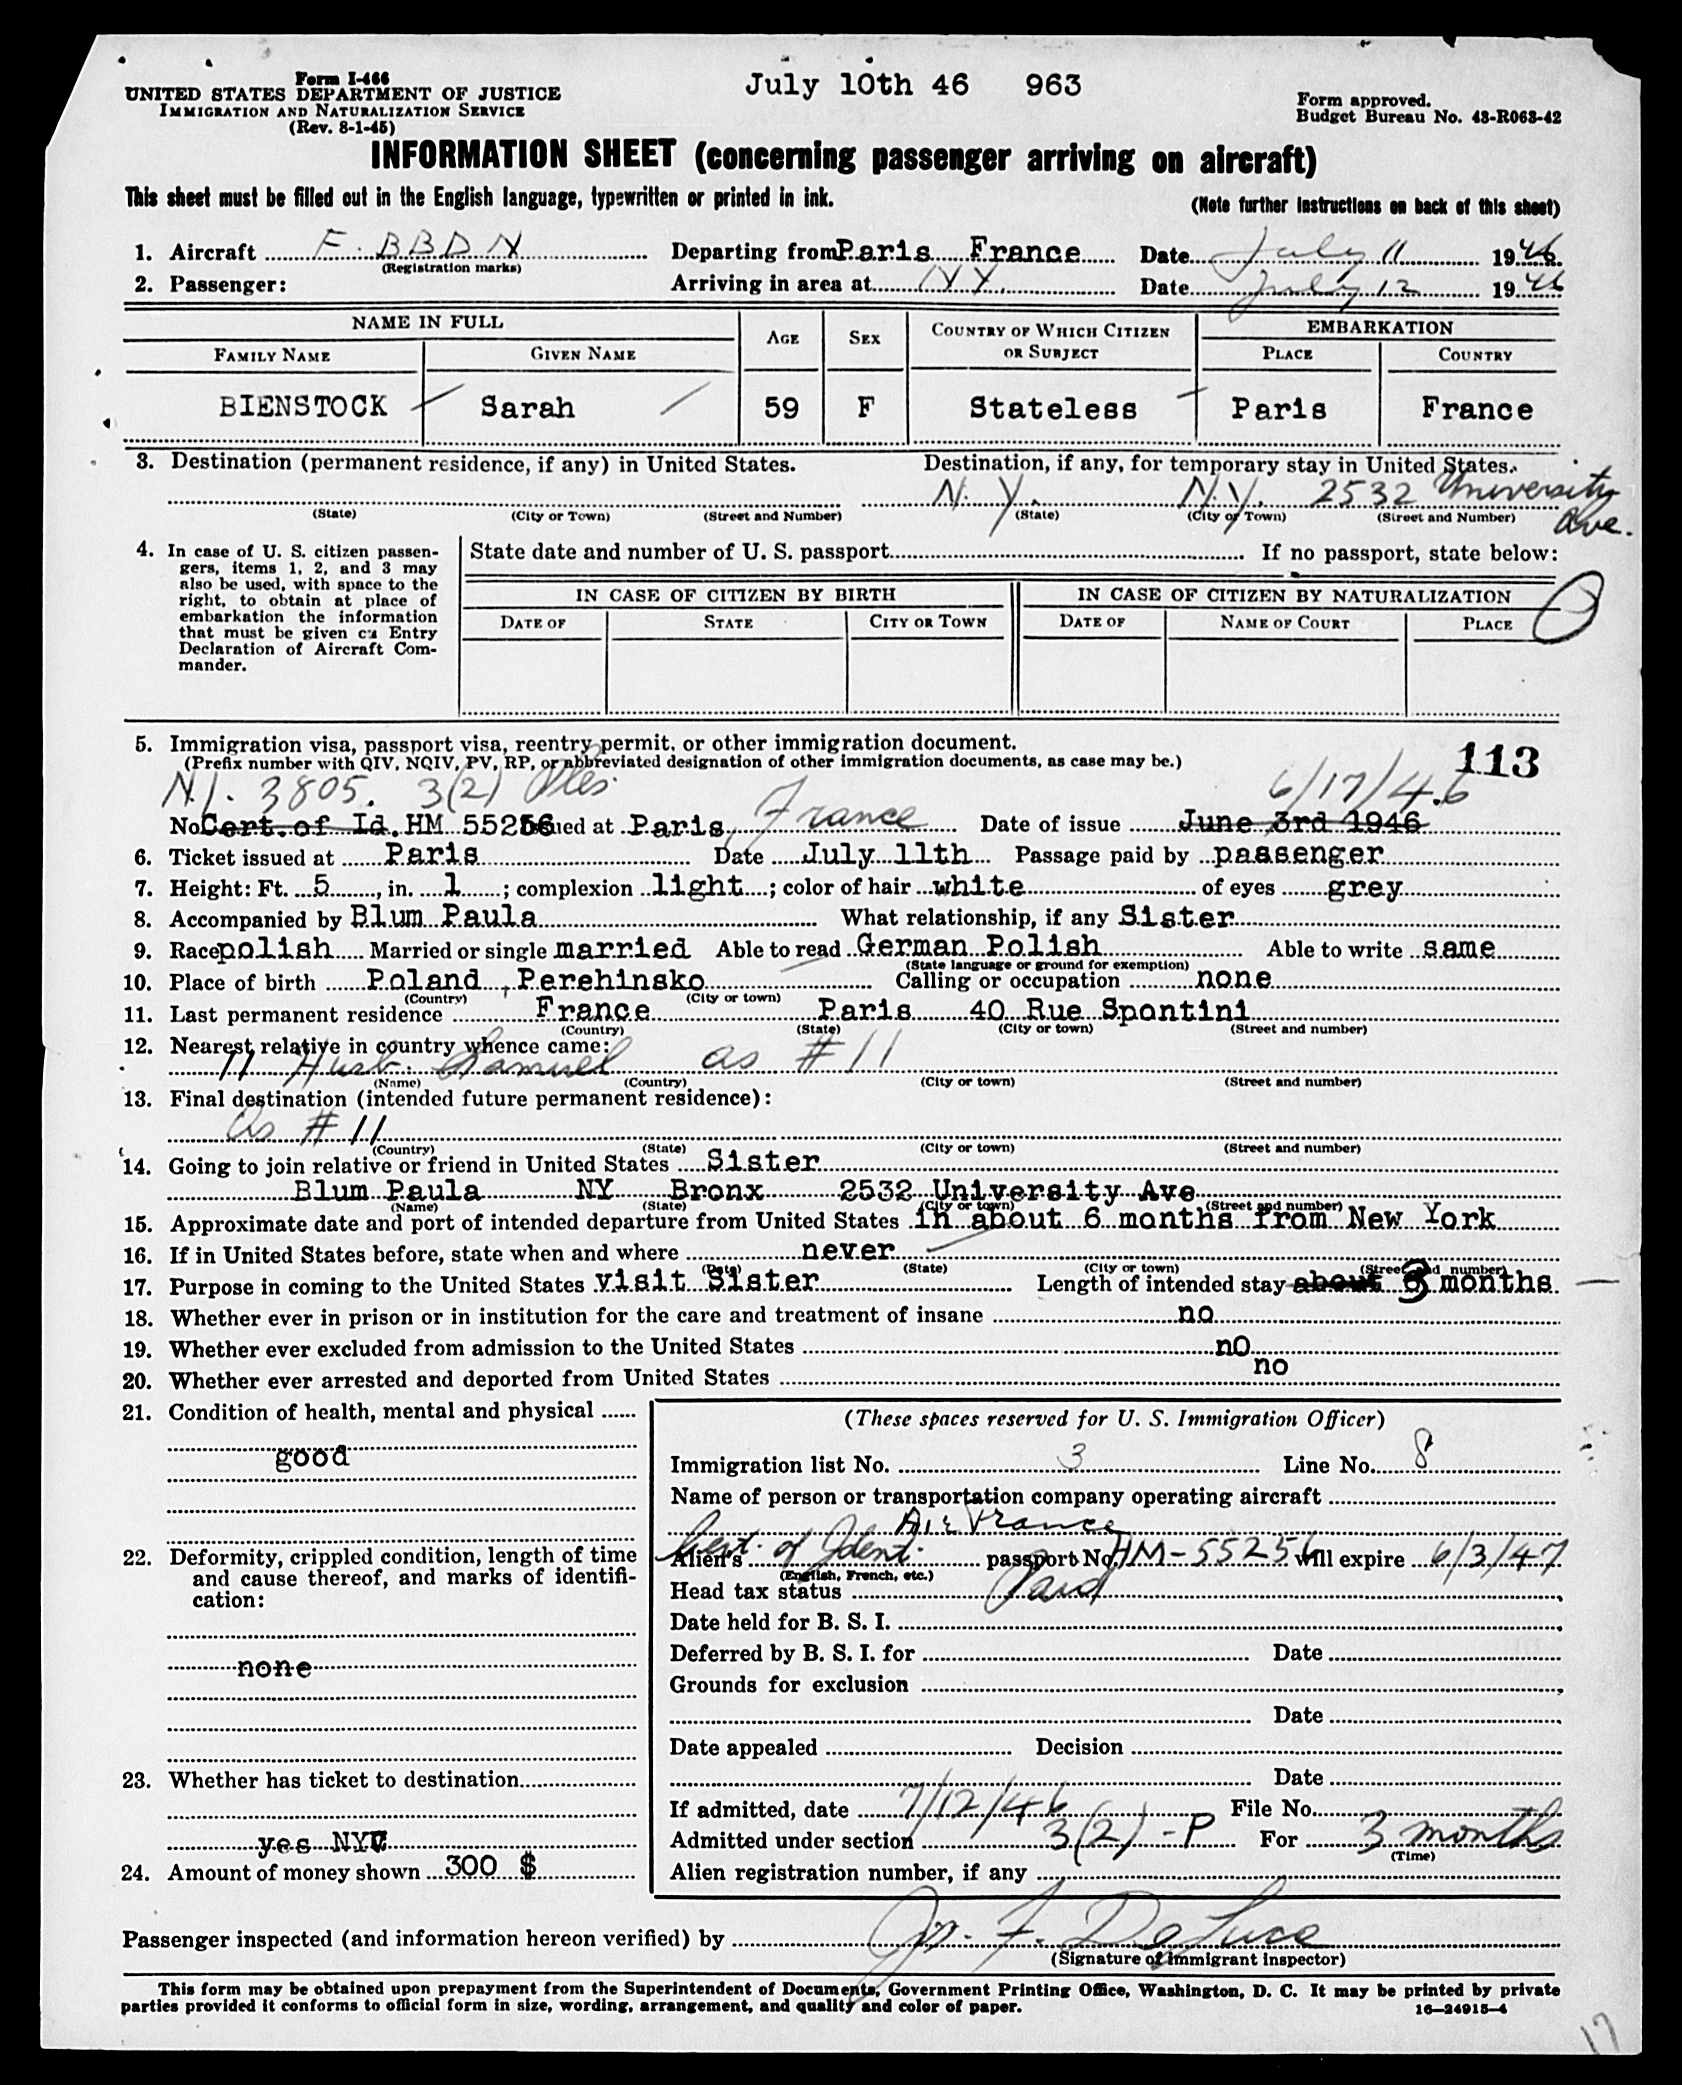 July 10th 46 963
Form I-466
UNITED STATES DEPARTMENT OF JUSTICE
IMMIGRATION AND NATURALIZATION SERVICE
(Rev. 8-1-45)
Form approved.
Budget Bureau No. 43-R063-42
INFORMATION SHEET (concerning passenger arriving on aircraft)
This sheet must be filled out in the English language, typewritten or printed in ink.
(Note further instructions on back of this sheet)
1. Aircraft F. BBDN Departing from Paris France Date July 11 1946
(Registration marks)
2. Passenger: Arriving in area at Date July 12 1946
NAME IN FULL AGE SEX COUNTRY OF WHICH CITIZEN OR SUBJECT EMBARKATION
FAMILY NAME GIVEN NAME PLACE COUNTRY
BIENSTOCK Sarah 59 F Stateless Paris France
3. Destination (permanent residence, if any) in United States. Destination, if any, for temporary stay in United States.
N. Y. N.Y. 2532 University Ave.
(State) (City or Town) (Street and Number) (State) (City or Town) (Street and Number)
4. In case of U. S. citizen passen-
gers, items 1, 2, and 3 may
also be used, with space to the
right, to obtain at place of
embarkation the information
that must be given on Entry
Declaration of Aircraft Com-
mander.
State date and number of U. S. passport If no passport, state below:
IN CASE OF CITIZEN BY BIRTH IN CASE OF CITIZEN BY NATURALIZATION
DATE OF STATE CITY OR TOWN DATE OF NAME OF COURT PLACE
5. Immigration visa, passport visa, reentry permit, or other immigration document.
(Prefix number with QIV, NQIV, PV, RP, or abbreviated designation of other immigration documents, as case may be.)
113
3805. 3(2) 6/17/46
No. Cert. of Id. HM 55256 issued at Paris, France Date of issue June 3rd 1946
6. Ticket issued at Paris Date July 11th Passage paid by passenger
7. Height: Ft. 5, in. 1; complexion light; color of hair white of eyes grey
8. Accompanied by Blum Paula What relationship, if any Sister
9. Race polish Married or single married Able to read German Polish Able to write same
(State language or ground for exemption)
10. Place of birth Poland, Perehinsko Calling or occupation none
(Country) (City or town)
11. Last permanent residence France Paris 40 Rue Spontini
(Country) (State) (City or town) (Street and number)
12. Nearest relative in country whence came:
Husb. Samuel as #11
(Name) (Country) (City or town) (Street and number)
13. Final destination (intended future permanent residence):
As #11
(Country) (State) (City or town) (Street and number)
14. Going to join relative or friend in United States Sister
Blum Paula NY Bronx 2532 University Ave
(Name) (State) (City or town) (Street and number)
15. Approximate date and port of intended departure from United States In about 6 months from New York
16. If in United States before, state when and where never
(Date) (State) (City or town) (Street and number)
17. Purpose in coming to the United States visit Sister Length of intended stay about 3 months
18. Whether ever in prison or in institution for the care and treatment of insane no
19. Whether ever excluded from admission to the United States nO
20. Whether ever arrested and deported from United States no
21. Condition of health, mental and physical
good
22. Deformity, crippled condition, length of time
and cause thereof, and marks of identifi-
cation:
none
23. Whether has ticket to destination
yes NYC
24. Amount of money shown 300 $
(These spaces reserved for U. S. Immigration Officer)
Immigration list No. 3 Line No. 8
Name of person or transportation company operating aircraft
Air France
Alien's Cert. of Ident. passport No. HM-55256 will expire 6/3/47
(English, French, etc.)
Head tax status Paid
Date held for B. S. I.
Deferred by B. S. I. for Date
Grounds for exclusion
Date
Date appealed Decision
Date
If admitted, date 7/12/46 File No.
Admitted under section 3(2)-P For 3 months
(Time)
Alien registration number, if any
Passenger inspected (and information hereon verified) by F. DeLuca
(Signature of immigrant inspector)
This form may be obtained upon prepayment from the Superintendent of Documents, Government Printing Office, Washington, D. C. It may be printed by private
parties provided it conforms to official form in size, wording, arrangement, and quality and color of paper.
16—24915-4
17